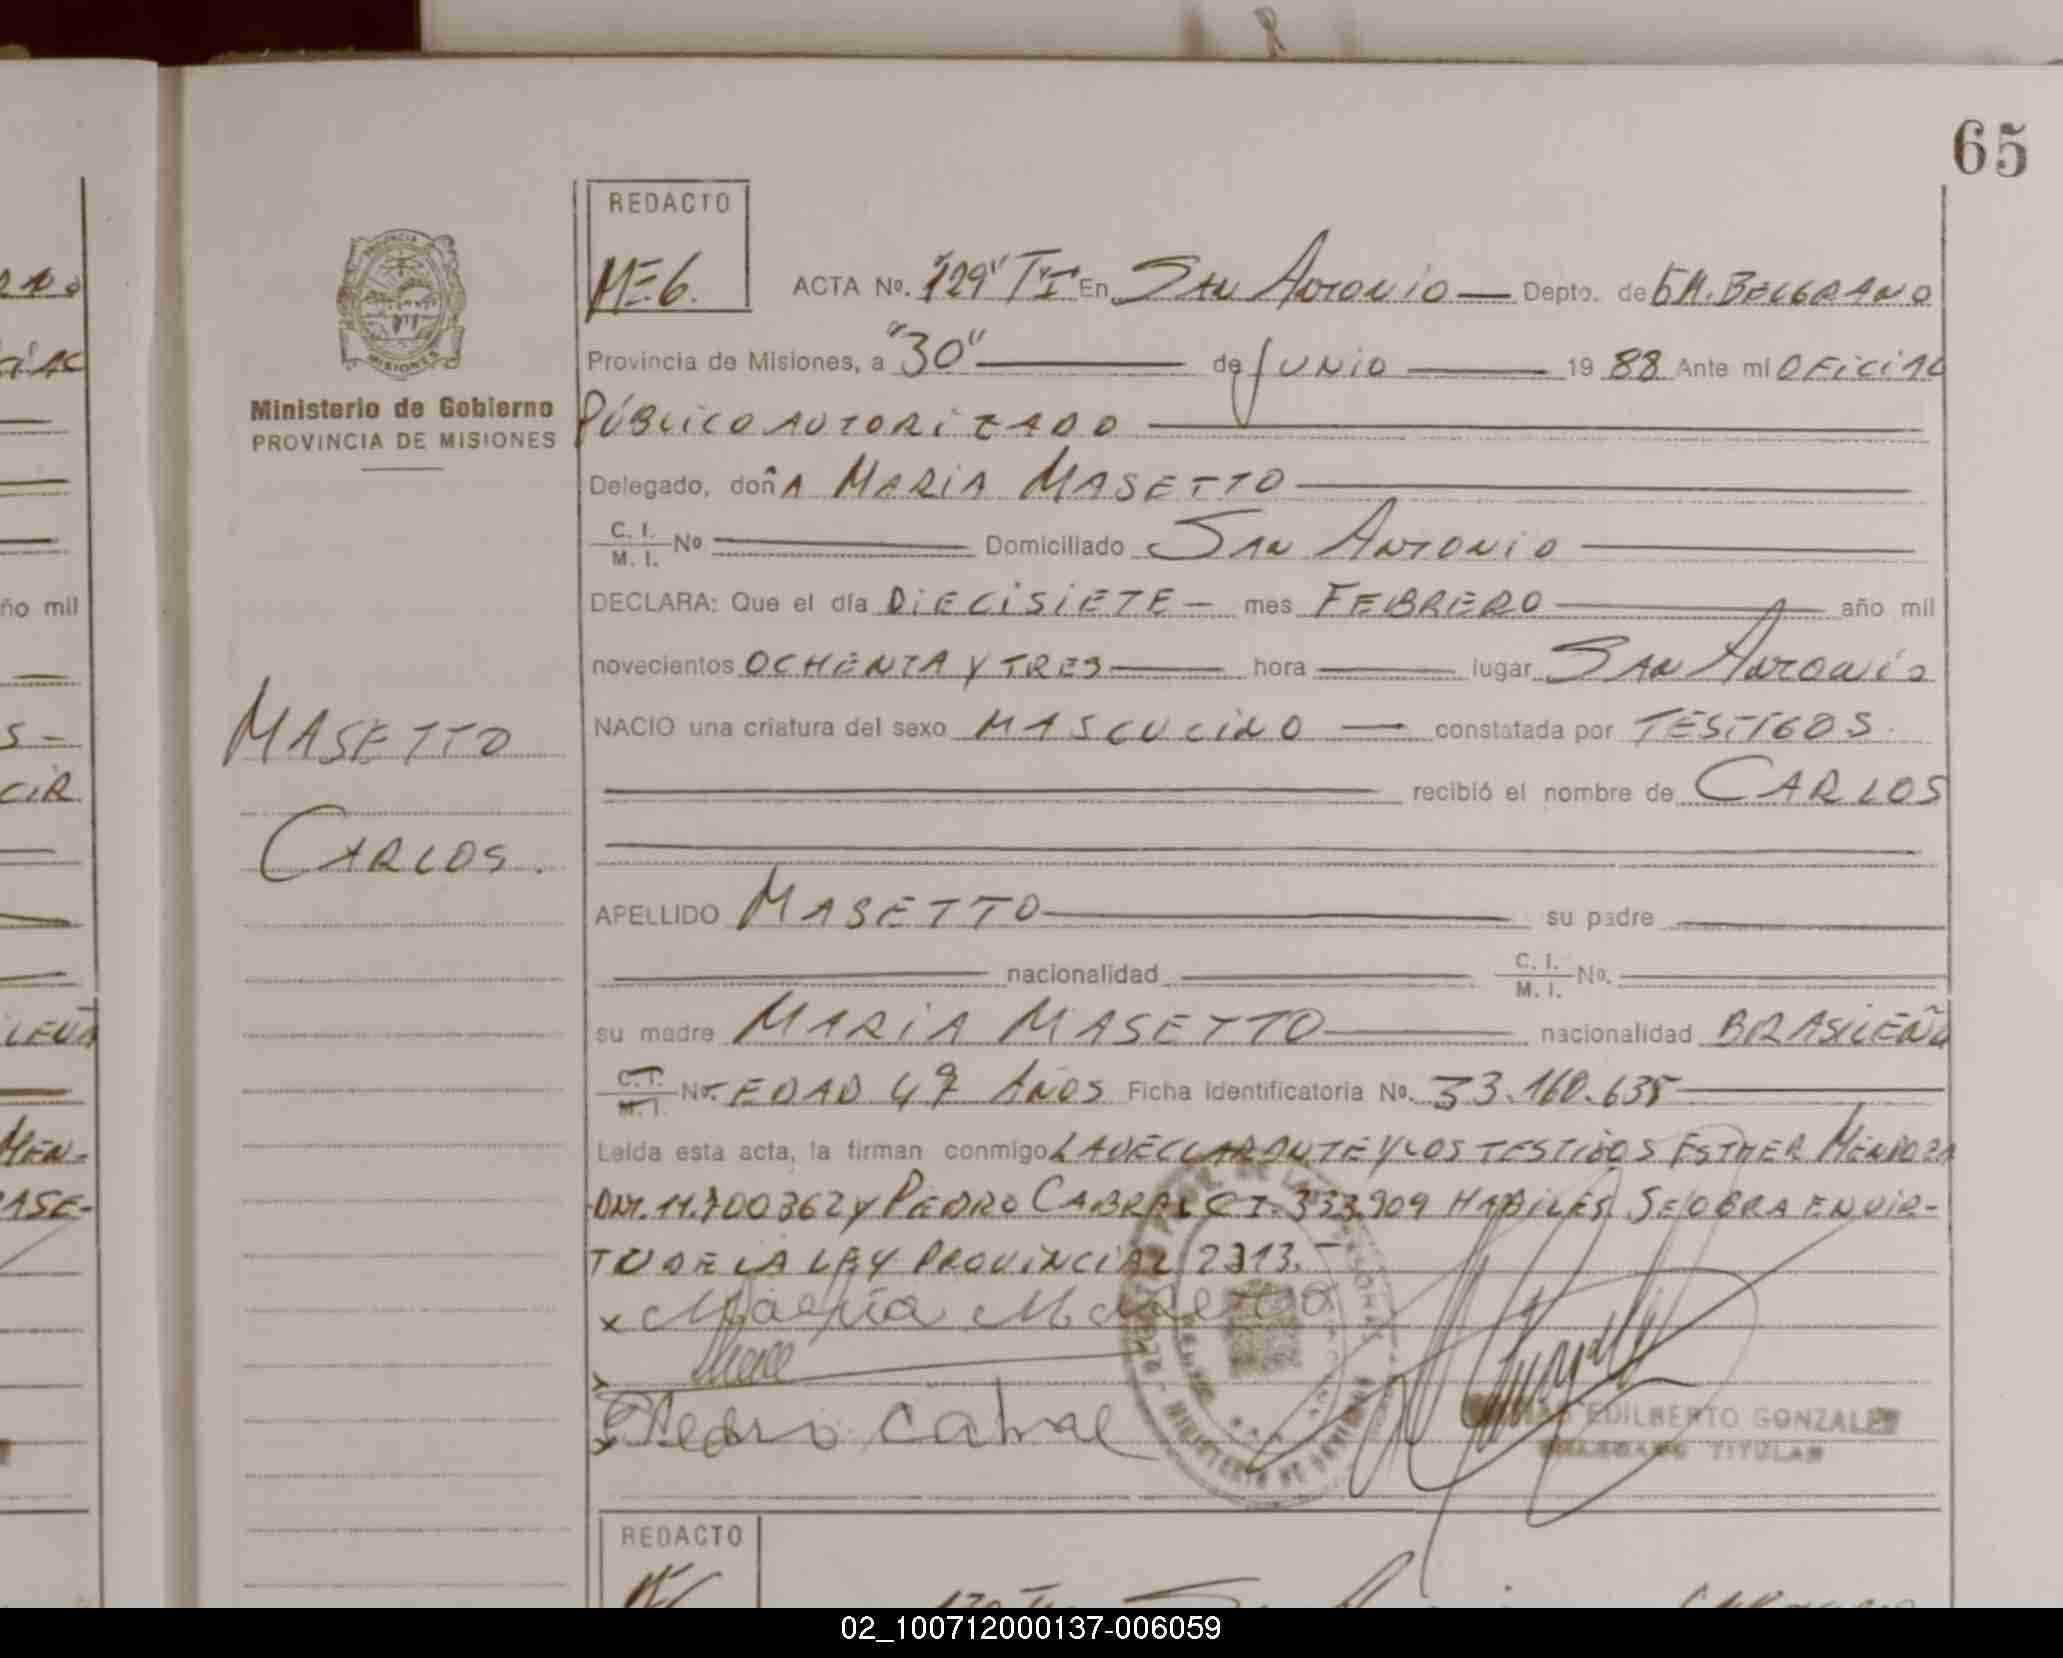 65
REDACTO
ME6.
ACTA No. "129" TºI En SAN ANTONIO Depto. de GM. BELGRANO
Provincia de Misiones, a "30" de JUNIO 1988 Ante mi OFICIAL
PÚBLICO AUTORIZADO
Delegado, doñA MARIA MASETTO
C. I. / M. I. No Domiciliado SAN ANTONIO
DECLARA: Que el día DIECISIETE - mes FEBRERO año mil
novecientos OCHENTA Y TRES hora lugar SAN ANTONIO
NACIO una criatura del sexo MASCULINO constatada por TESTIGOS.
recibió el nombre de CARLOS
APELLIDO MASETTO su padre
nacionalidad C. I. / M. I. No.
su madre MARIA MASETTO nacionalidad BRASILEÑA
C. I. / M. I. No. EDAD 47 AÑOS Ficha identificatoria No. 33.160.635
Leída esta acta, la firman conmigo LA DECLARANTE Y LOS TESTIGOS ESTHER MENDOZA
DNI. 11.700362 y PEDRO CABRAL C I. 333909 HABILES SE OBRA EN VIR-
TU DE LA LEY PROVINCIAL 2313.-
x Maria Masetto
x
x Pedro Cabral
EDILBERTO GONZALEZ
DELEGADO TITULAR
REDACTO
PROVINCIA
MISIONES
Ministerio de Gobierno
PROVINCIA DE MISIONES
MASETTO
CARLOS.
ño mil
S-
CIR
LEÑA
MEN-
ASE-
02_100712000137-006059